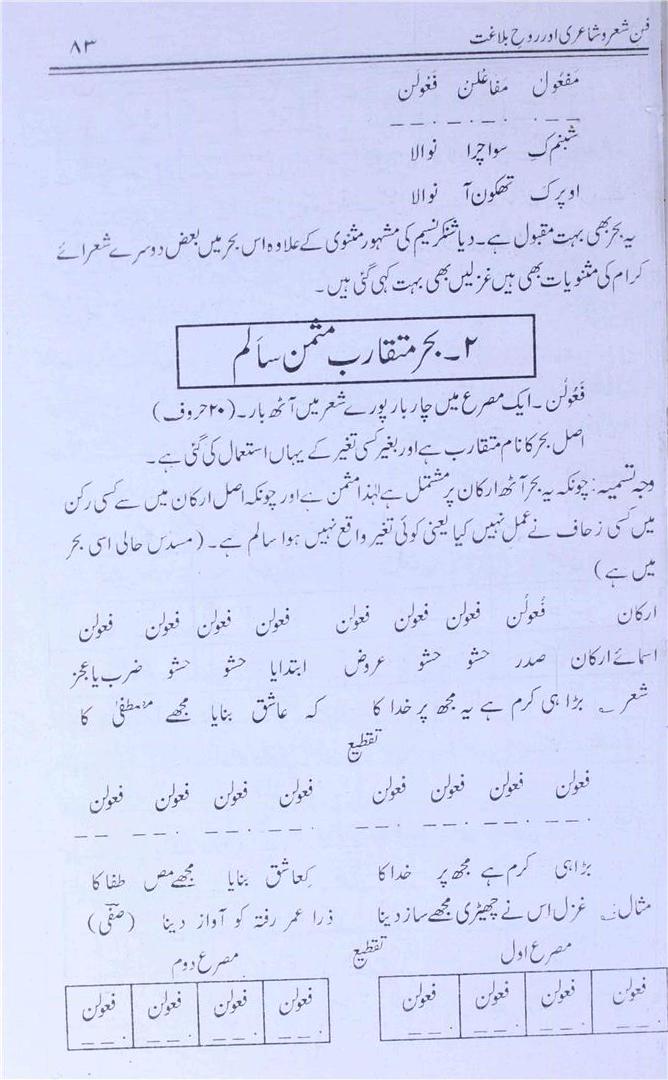 فن شعر و شاعری اور روح بلاغت ۸۳
مَفعُول مَفاعلن فَعُولن
_ _ . . _ . _ . _ _
شبنم کِ سوا چرا نوالا
اوپر کَ تھکون آ نوالا
یہ بحر بھی بہت مقبول ہے۔ دیا شنکر نسیم کی مشہور مثنوی کے علاوہ اس بحر میں بعض دوسرے شعرائے
کرام کی مثنویات بھی ہیں غزلیں بھی بہت کہی گئی ہیں۔
۲۔ بحر متقارب مثمن سالم
فَعُولُن۔ ایک مصرع میں چار بار پورے شعر میں آٹھ بار۔ (۲۰ حروف)
اصل بحر کا نام متقارب ہے اور بغیر کسی تغیر کے یہاں استعمال کی گئی ہے۔
وجہ تسمیہ: چونکہ یہ بحر آٹھ ارکان پر مشتمل ہے لہٰذا مثمن ہے اور چونکہ اصل ارکان میں سے کسی رکن
میں کسی زحاف نے عمل نہیں کیا یعنی کوئی تغیر واقع نہیں ہوا سالم ہے۔ (مسدس حالی اسی بحر
میں ہے)
ارکان فَعُولُن فعولن فعولن فعولن فعولن فعولن فعولن فعولن
اسمائے ارکان صدر حشو حشو عروض ابتدایا حشو حشو ضرب یا عجز
شعر ؎ بڑا ہی کرم ہے یہ مجھ پر خدا کا کہ عاشق بنایا مجھے مصطفیٰ کا
تقطیع
فعولن فعولن فعولن فعولن فعولن فعولن فعولن فعولن
. _ _ . _ _ . _ _ . _ _ . _ _ . _ _ . _ _ . _ _
بڑا ہی کرم ہے مجھ پر خدا کا کِعاشق بنایا مجھے مص طفا کا
مثال ؎ غزل اس نے چھیڑی مجھے ساز دینا ذرا عمر رفتہ کو آواز دینا (صفی)
مصرع اول تقطیع مصرع دوم
فعولن فعولن فعولن فعولن فعولن فعولن فعولن فعولن
. _ _ . _ _ . _ _ . _ _ . _ _ . _ _ . _ _ . _ _